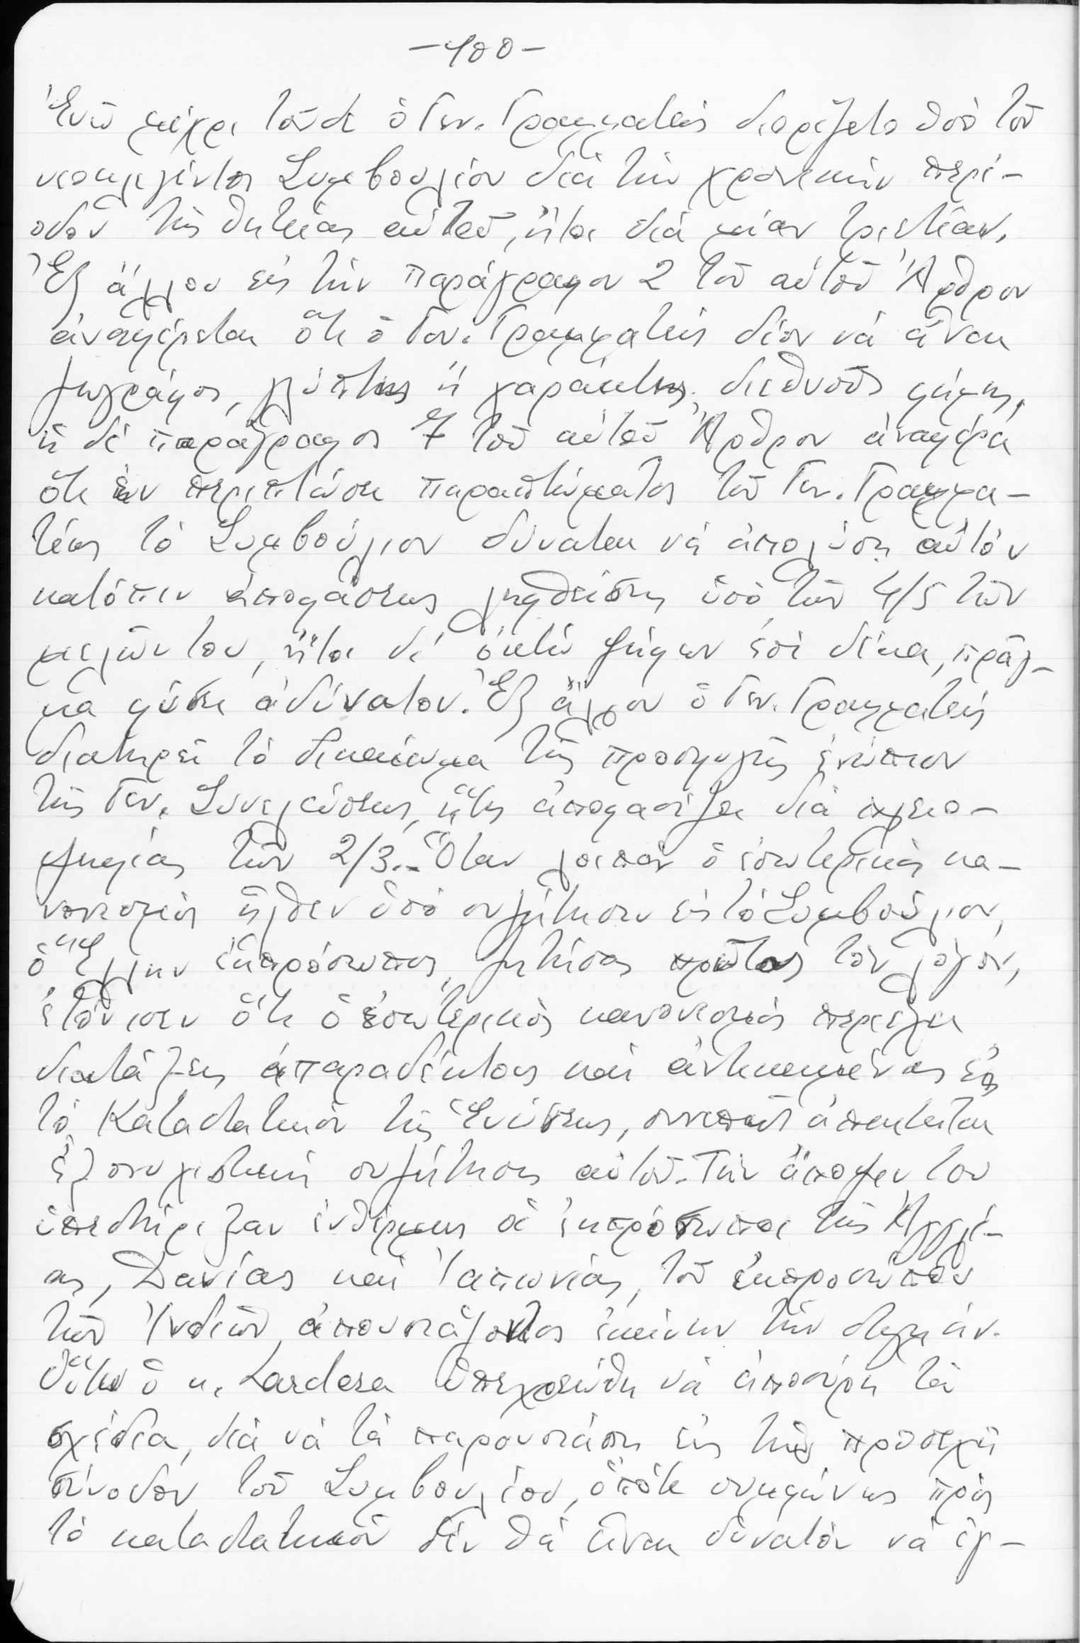 -400-
Ἐνῶ μέχρι τοῦδε ὁ Γεν. Γραμματεύς διωρίζετο ὑπό τοῦ
νεοεκλεγέντος Συμβουλίου διά τήν χρονικήν περί-
οδον τῆς θητείας αὐτοῦ, ἤτοι διά μίαν τριετίαν.
Ἐξ ἄλλου εἰς τήν παράγραφον 2 τοῦ αὐτοῦ Ἄρθρου
ἀναφέρεται ὅτι ὁ Γεν. Γραμματεύς δέον νά εἶναι
ζωγράφος, γλύπτης ἤ χαράκτης διεθνοῦς φήμης,
ἡ δέ παράγραφος 7 τοῦ αὐτοῦ Ἄρθρου ἀναφέρει
ὅτι ἐν περιπτώσει παραπτώματος τοῦ Γεν. Γραμμα-
τέως τό Συμβούλιον δύναται νά ἀπολύσῃ αὐτόν
κατόπιν ἀποφάσεως ληφθείσης ὑπό τῶν 4/5 τῶν
μελῶν του, ἤτοι δι' ὀκτώ ψήφων ἐπί δέκα, πρᾶγ-
μα φύσει ἀδύνατον. Ἐξ ἄλλου ὁ Γεν. Γραμματεύς
διατηρεῖ τό δικαίωμα τῆς προσφυγῆς ἐνώπιον
τῆς Γεν. Συνελεύσεως, ἥτις ἀποφασίζει διά πλειο-
ψηφίας τῶν 2/3.- Ὅταν λοιπόν ὁ ἐσωτερικός κα-
νονισμός ἦλθεν ὑπό συζήτησιν εἰς τό Συμβούλιον,
ὁ Ἕλλην ἐκπρόσωπος, ζητήσας πρῶτος τόν λόγον,
ἐτόνισεν ὅτι ὁ ἐσωτερικός κανονισμός περιέχει
διατάξεις ἀπαραδέκτους καί ἀντικειμένας εἰς
τό Καταστατικόν τῆς Ἑνώσεως, συνεπῶς ἀπαιτεῖται
ἐξονυχιστική συζήτησις αὐτοῦ. Τήν ἄποψιν του
ὑπεστήριξαν ἐνθέρμως οἱ ἐκπρόσωποι τῆς Ἀγγλί-
ας, Δανίας καί Ἰαπωνίας, τοῦ ἐκπροσώπου
τῶν Ἰνδιῶν ἀπουσιάζοντος ἐκείνην τήν στιγμήν.
Οὕτω ὁ κ. Lardera ὑπεχρεώθη νά ἀποσύρῃ τά
σχέδια, διά νά τά παρουσιάσῃ εἰς τήν προσεχῆ
σύνοδον τοῦ Συμβουλίου, ὁπότε συμφώνως πρός
τό καταστατικόν δέν θά εἶναι δυνατόν νά ἐγ-